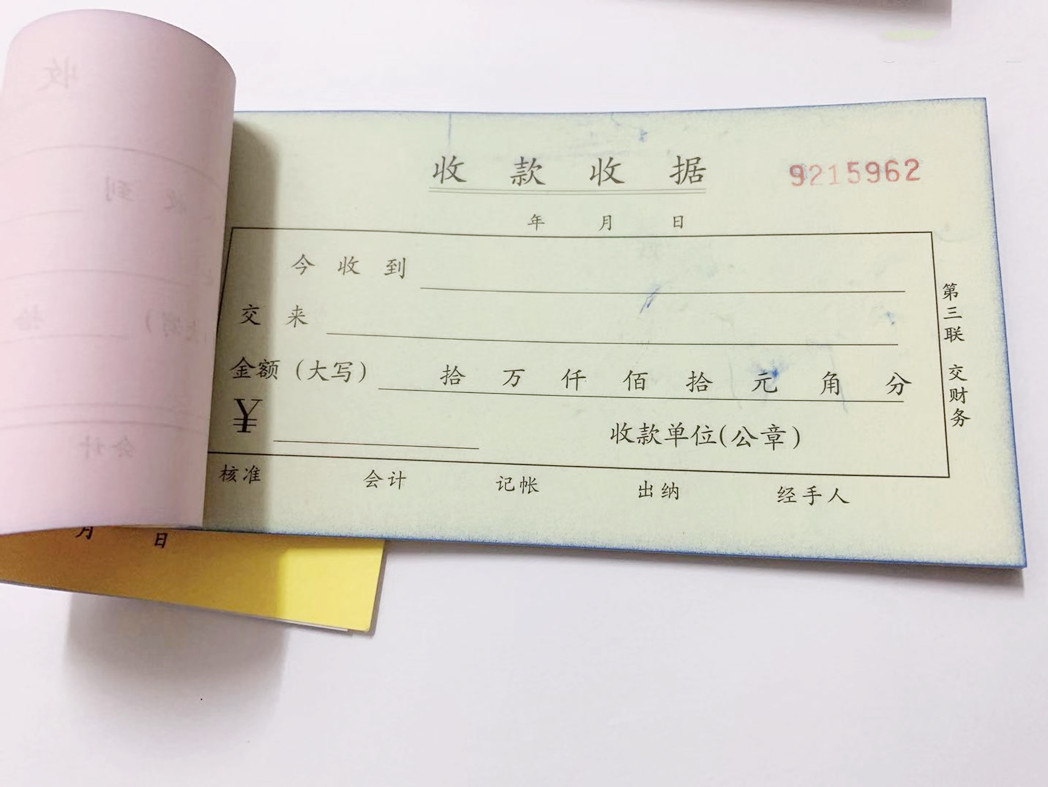 收款收据
9215962
年 月 日
今收到
交来
金额（大写） 拾 万 仟 佰 拾 元 角 分
¥
收款单位（公章）
核准 会计 记帐 出纳 经手人
第三联 交财务
月 日
收
收到
拾
会计